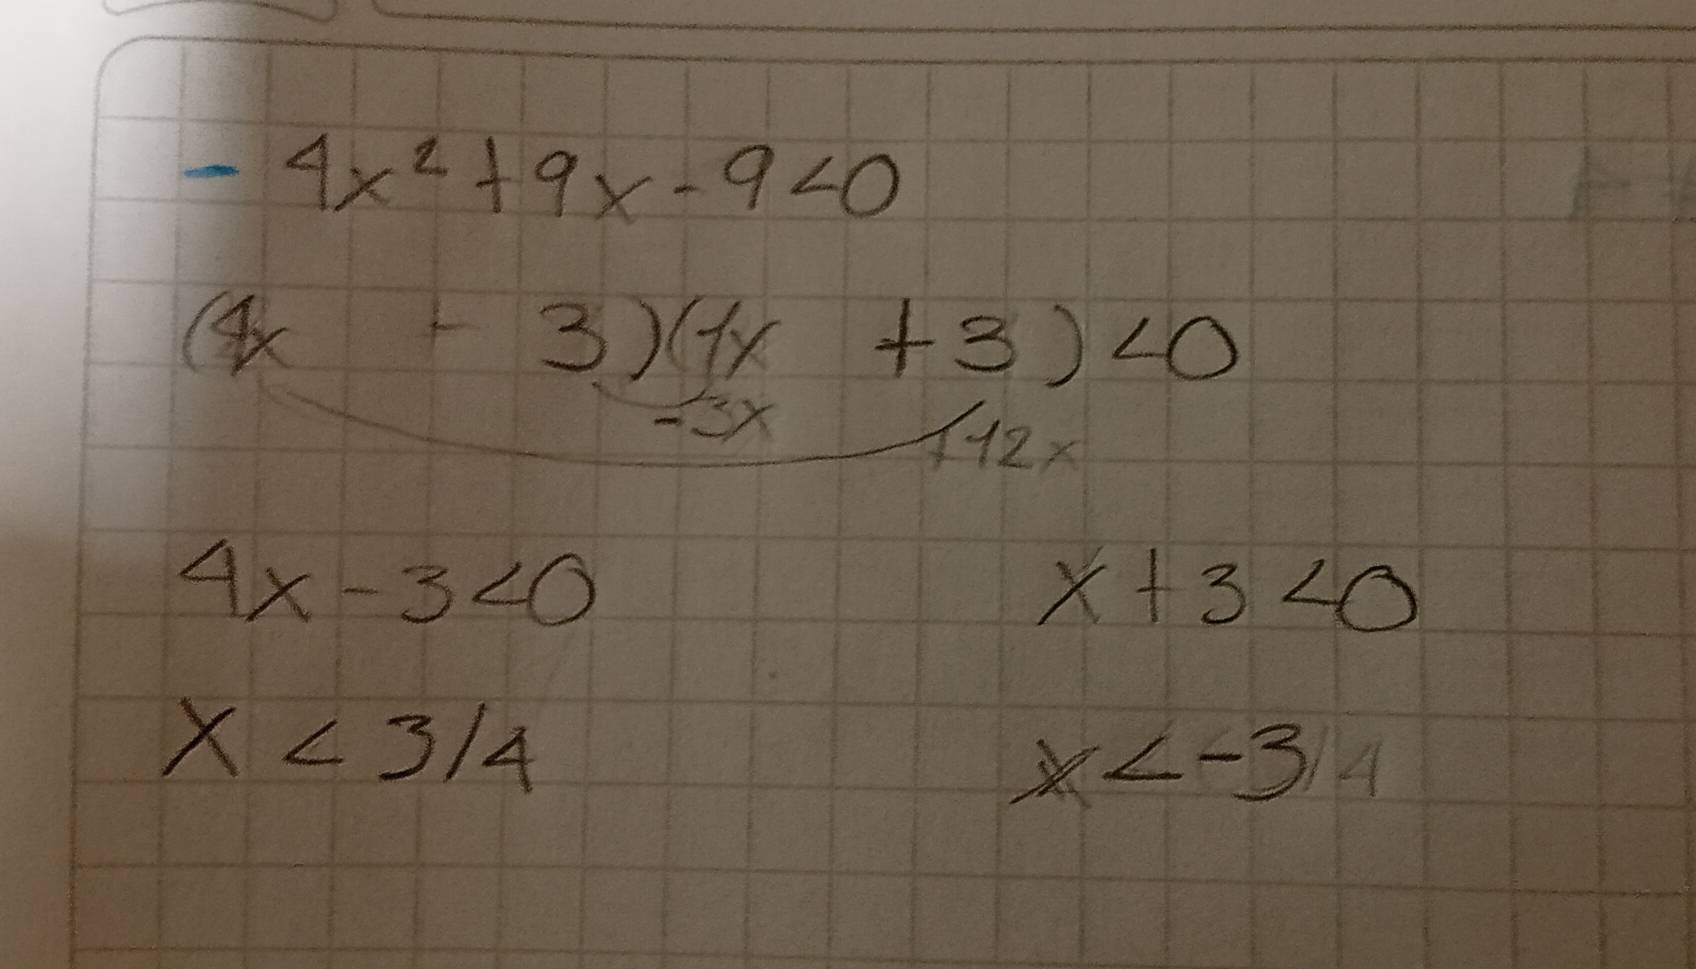 - 4x² + 9x - 9 < 0
(4x - 3)(1x + 3) < 0
-3x
+12x
4x - 3 < 0 x + 3 < 0
x < 3/4 x < -3/4